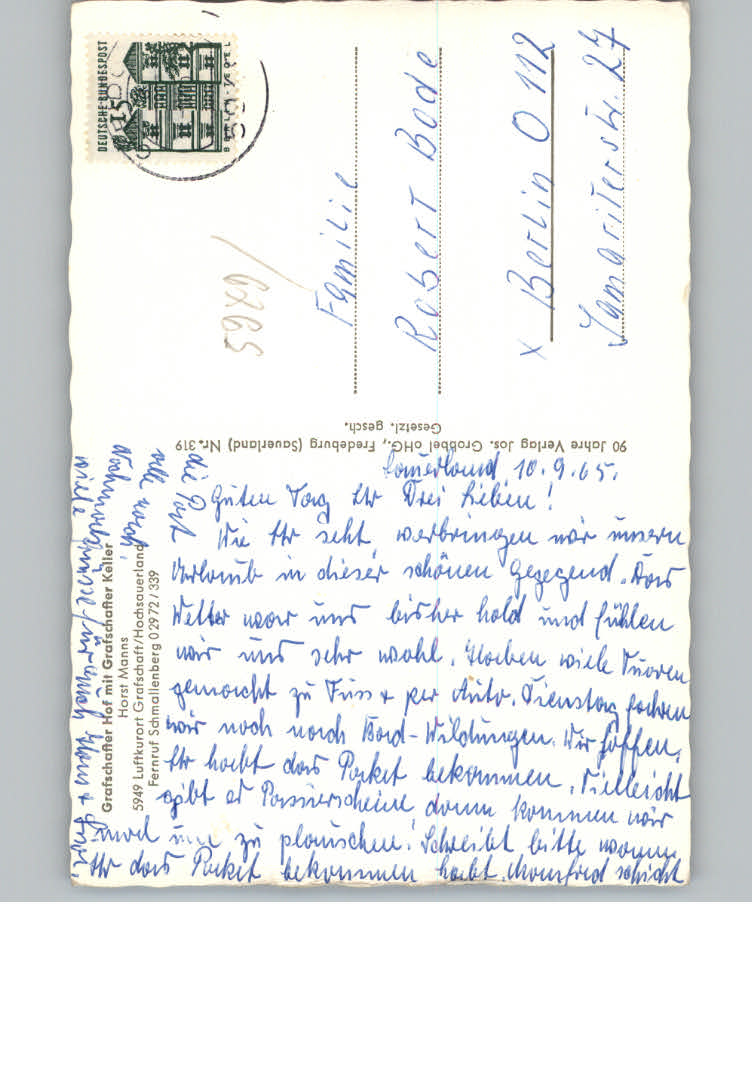 Sauerland 10.9.65.
Guten Tag Ihr Drei Lieben!
Wie Ihr seht verbringen wir unsern
Urlaub in dieser schönen Gegegend. Das
Wetter war uns bisher hold und fühlen
wir uns sehr wohl. Haben viele Turen
gemacht zu Fuss + per Auto. Dienstag fahren
wir noch nach Bad-Wildungen. Wir hoffen,
Ihr habt das Paket bekommen. Vielleicht
gibt es Passierscheine dann kommen wir
mal um zu plauschen! Schreibt bitte wann
Ihr das Paket bekommen habt. Manfred schickt
die Post
alle nach.
viele Grüsse für Euch
Grafschafter Hof mit Grafschafter Keller
Horst Manns
5949 Luftkurort Grafschaft/Hochsauerland
Fernruf Schmallenberg 02972/339
90 Jahre Verlag Jos. Grobbel oHG., Fredeburg (Sauerland) Nr. 319
Gesetzl. gesch.
DEUTSCHE BUNDESPOST
15
Familie
Robert Bode
x Berlin O 112
Samariterstr. 27